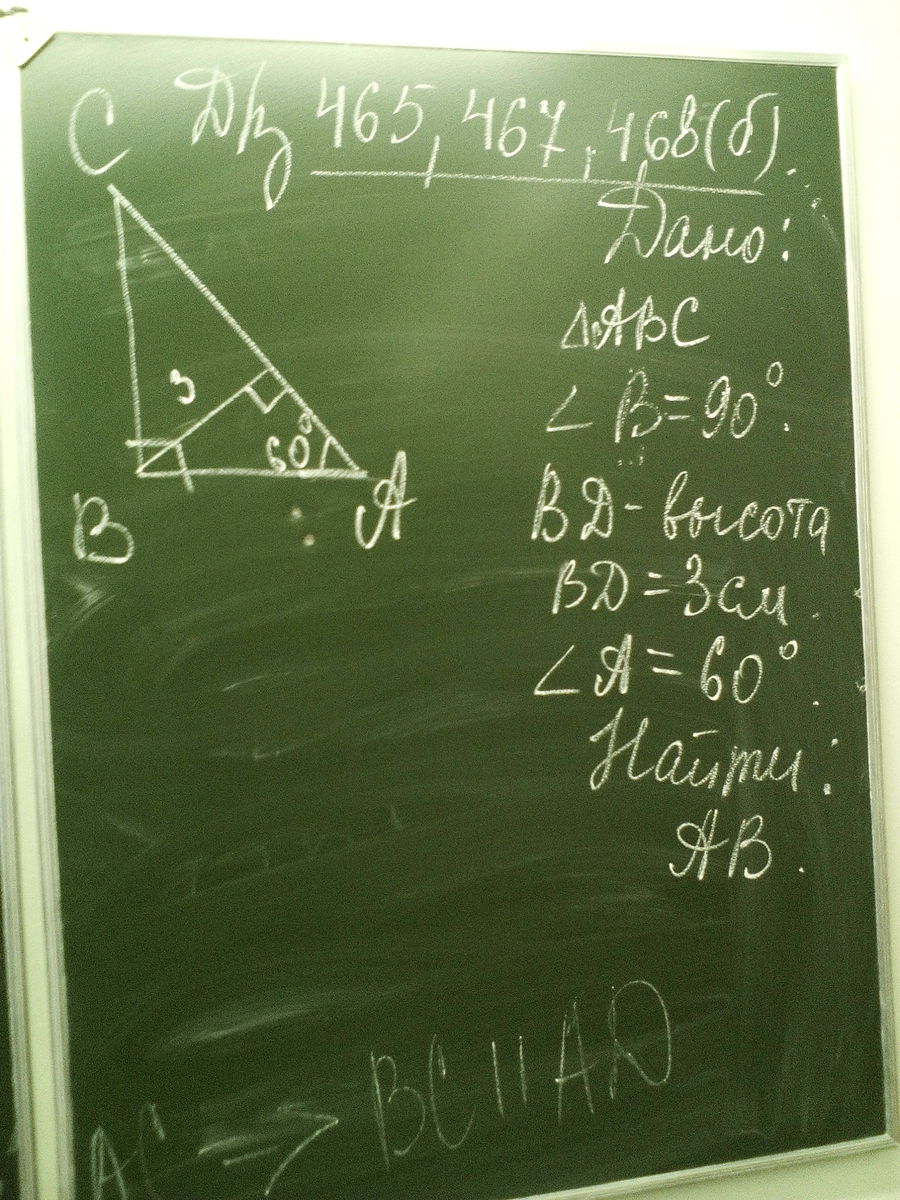 Дз 465, 467, 468(б).
C
3
60°
B
A
Дано:
△ABC
∠B=90°.
BD-высота
BD=3см.
∠A=60°.
Найти:
AB.
AC ⇒ BC||AD